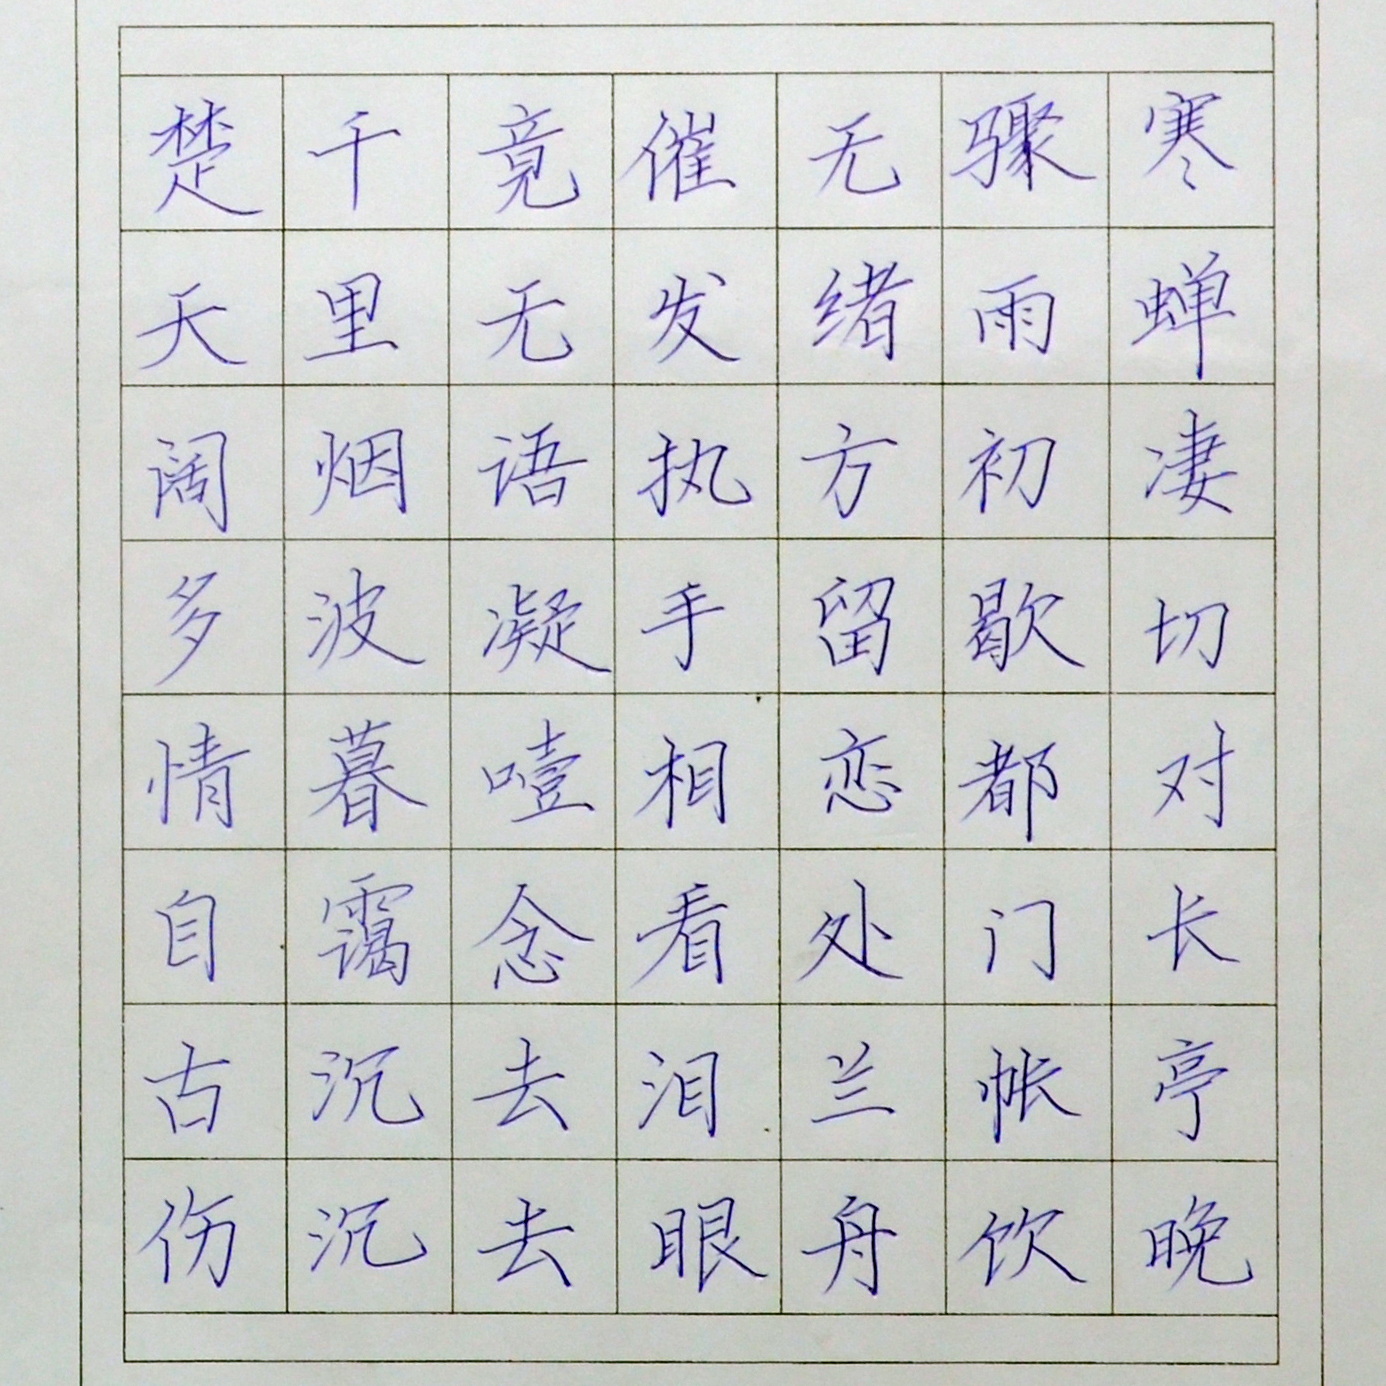 寒蝉凄切对长亭晚
骤雨初歇都门帐饮
无绪方留恋处兰舟
催发执手相看泪眼
竟无语凝噎念去去
千里烟波暮霭沉沉
楚天阔多情自古伤